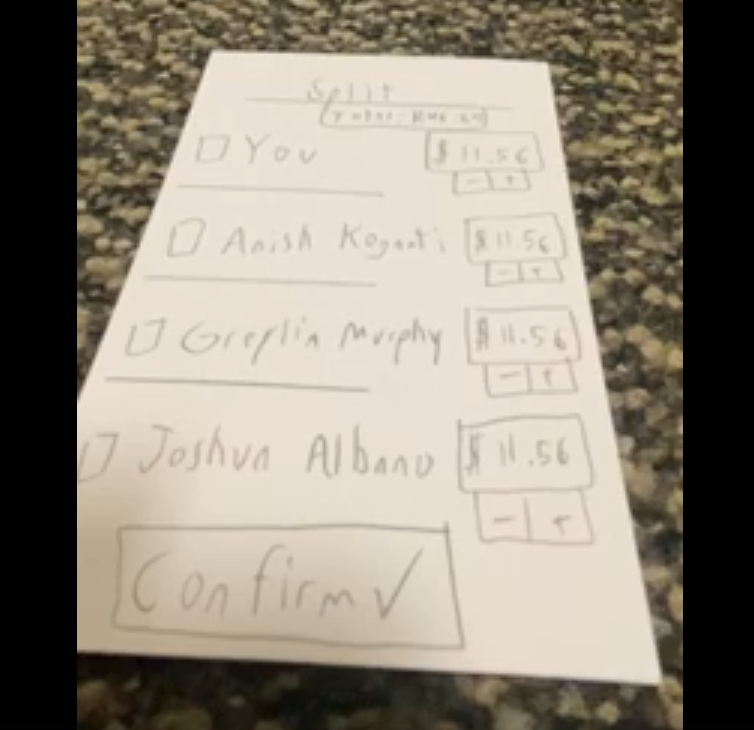 Split
Total: $46.24
You $11.56
- +
Anish Koganti $11.56
- +
Greflin Murphy $11.56
- +
Joshua Albano $11.56
- +
Confirm✓